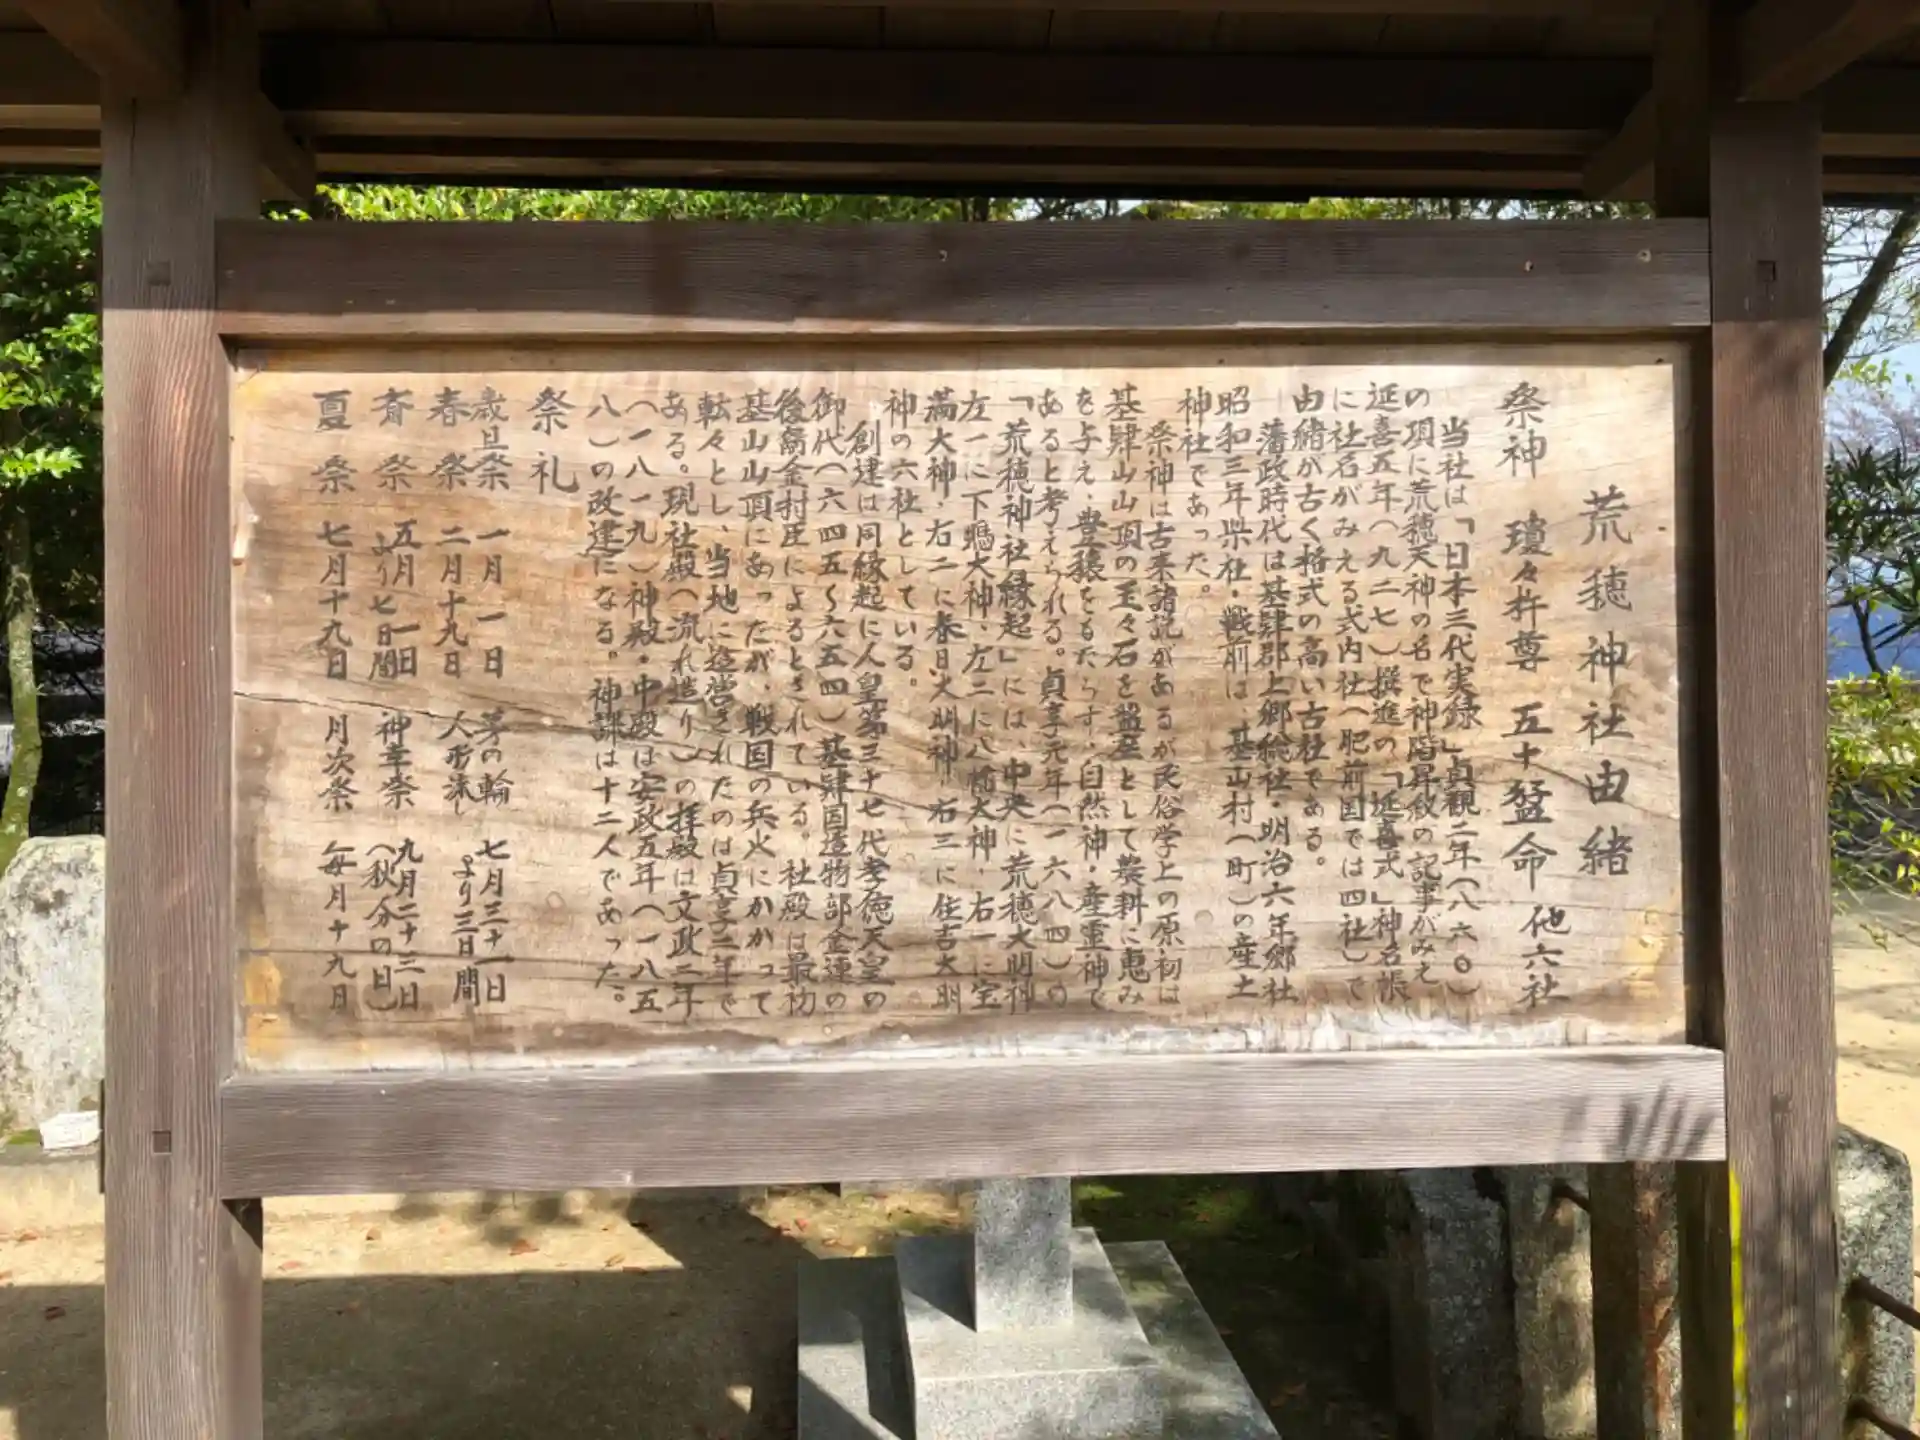 荒穂神社由緒
祭神 瓊々杵尊 五十猛命 他六社
当社は「日本三代実録」貞観二年(八六〇)
の項に荒穂天神の名で神階昇叙の記事がみえ
延喜五年(九二七)撰進の「延喜式」神名帳
に社名がみえる式内社(肥前国では四社)で
由緒が古く格式の高い古社である。
藩政時代は基肄郡上郷総社・明治六年郷社
昭和三年県社・戦前は、基山村(町)の産土
神社であった。
祭神は古来諸説があるが民俗学上の原初は
基肄山山頂の玉々石を盤座として農耕に恵み
を与え、豊穣をもたらす、自然神・産霊神で
あると考えられる。貞享元年(一六八四)の
「荒穂神社縁起」には、中央に荒穂大明神
左一に下鴨大神、左二に八幡大神、右一に宝
満大神、右二に春日大明神、右三に住吉大明
神の六社としている。
創建は同縁起に人皇第三十七代孝徳天皇の
御代(六四五〜六五四)基肄国造物部金連の
後裔金村臣によるとされている。社殿は最初
基山山頂にあったが、戦国の兵火にかかって
転々とし、当地に造営されたのは貞享二年で
ある。現社殿(流れ造り)の拝殿は文政二年
(一八一九)神殿・中殿は安政五年(一八五
八)の改建になる。神課は十二人であった。
祭礼
歳旦祭 一月一日 茅の輪 七月三十一日
より三日間
春祭 二月十九日 人形流し
斎祭 五月一日 神幸祭 九月二十三日
より七日間 (秋分の日)
夏祭 七月十九日 月次祭 毎月十九日